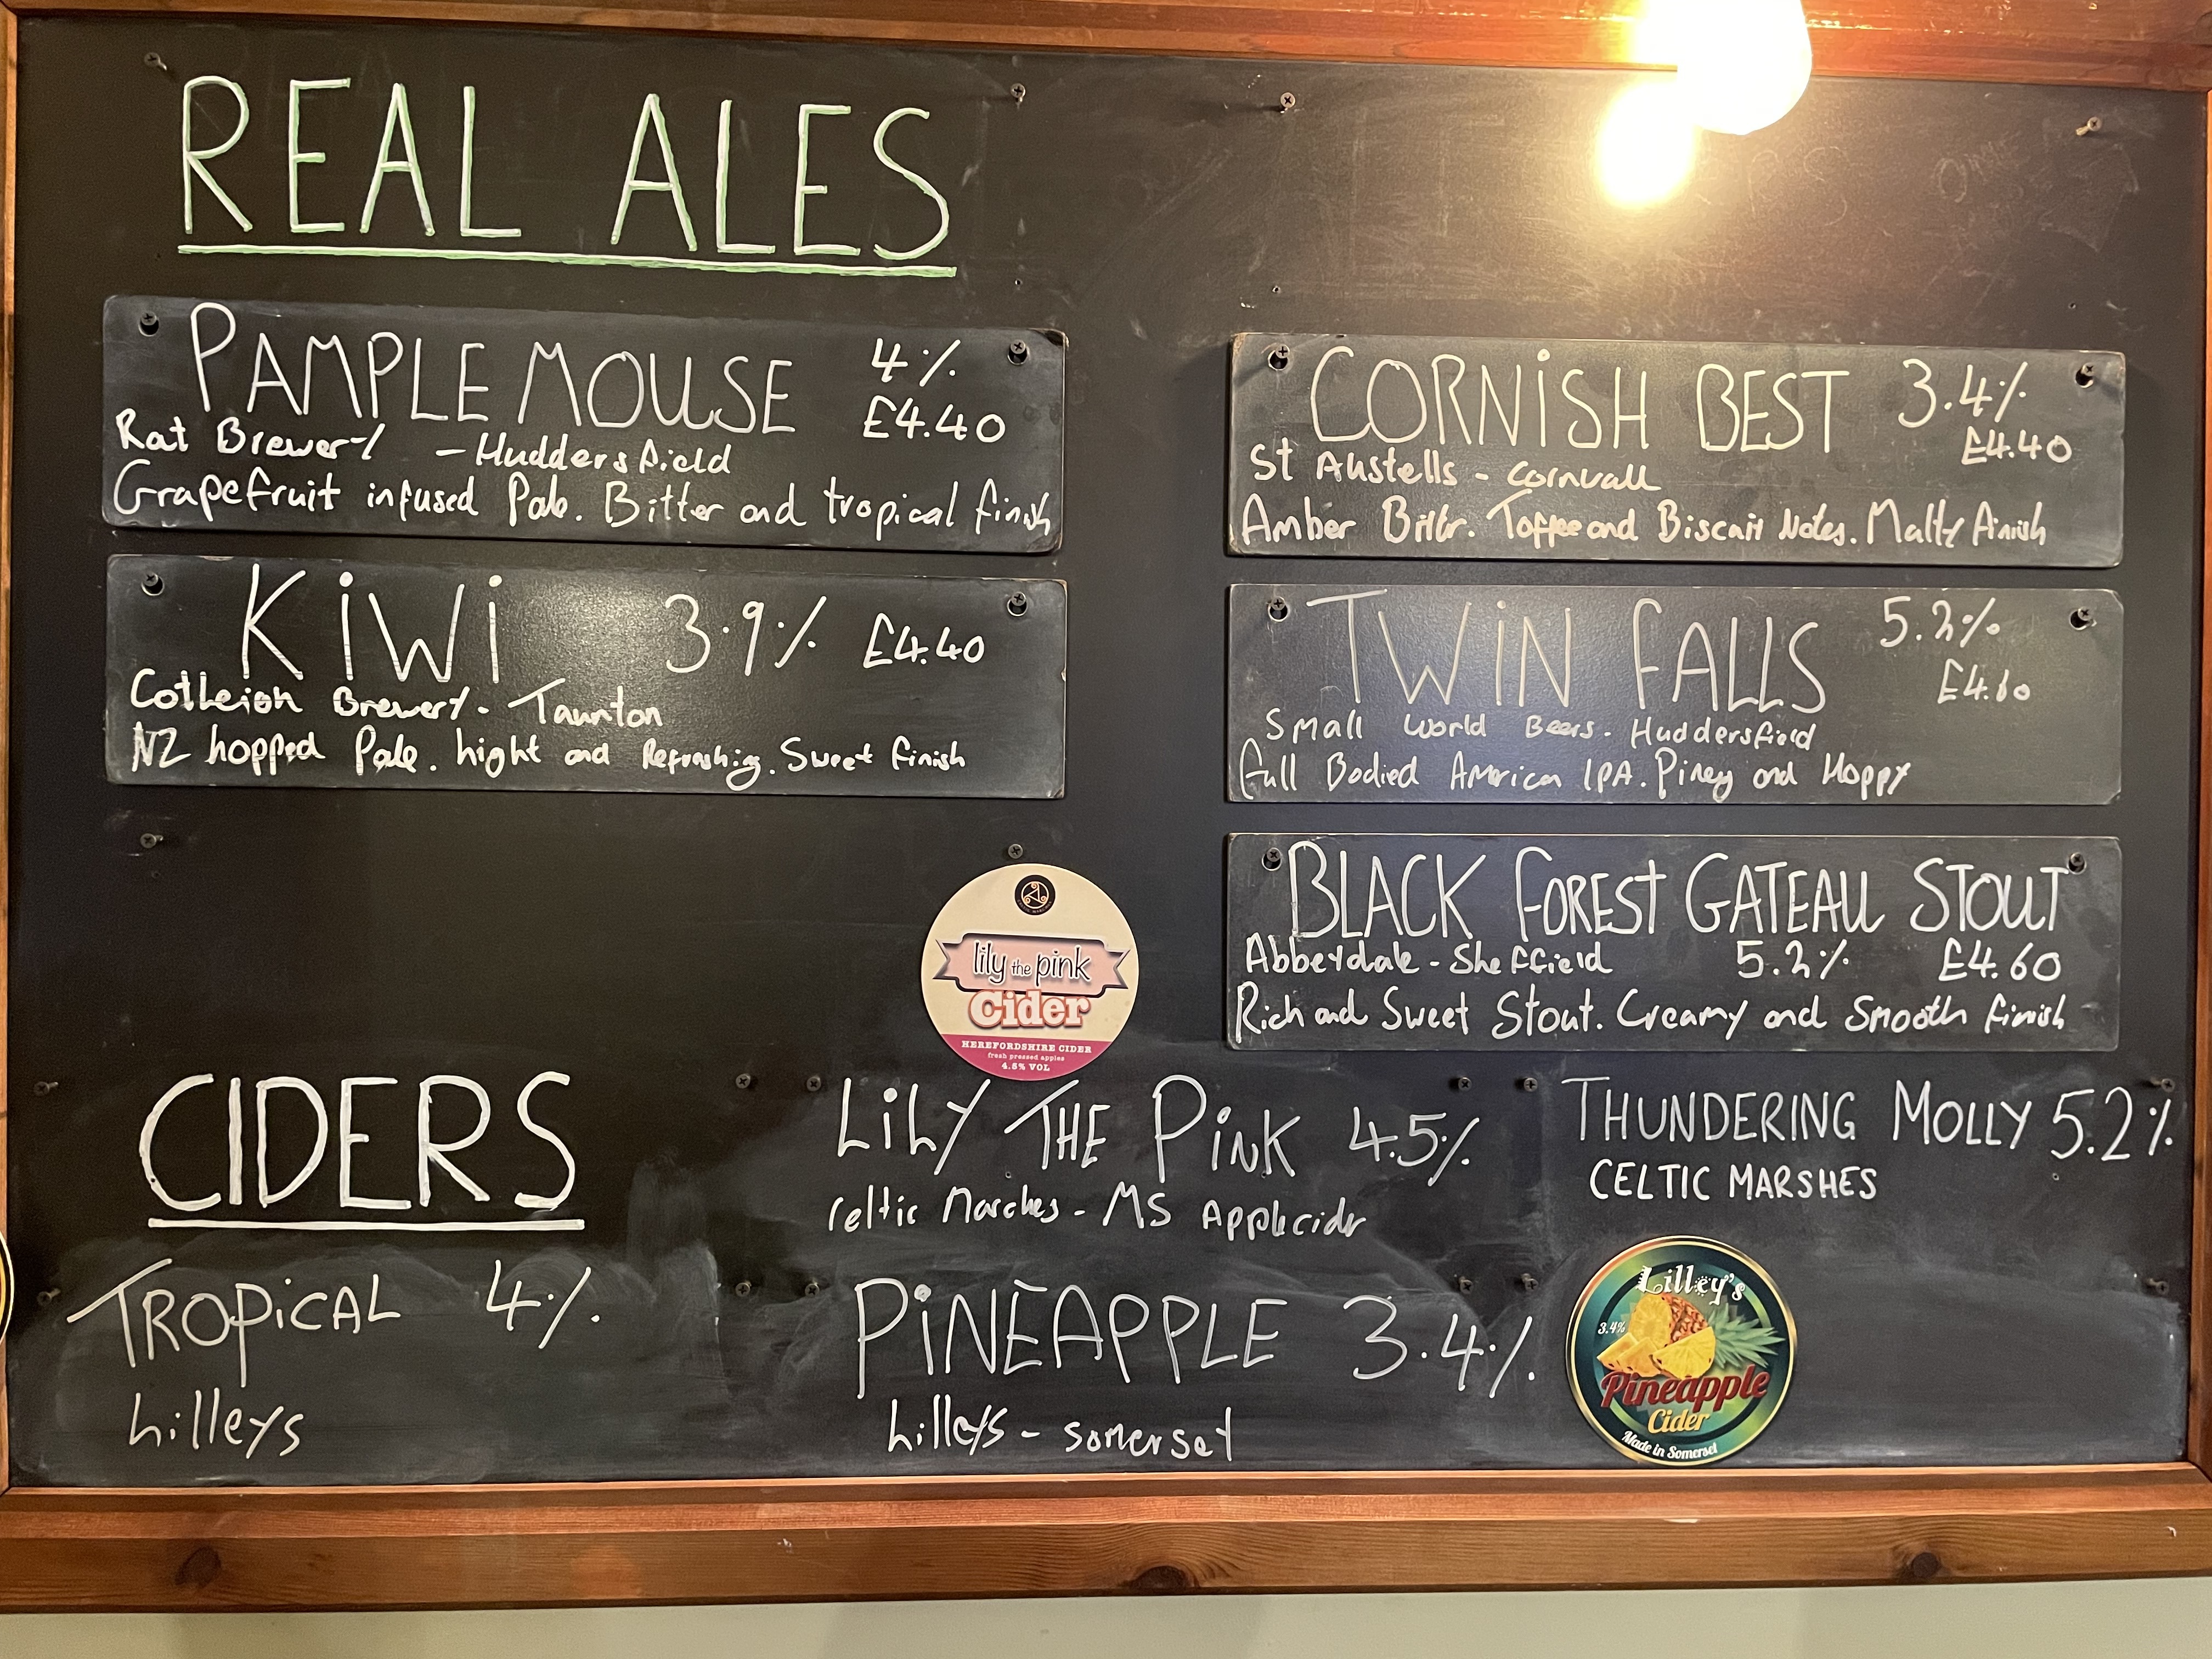 REAL ALES
PAMPLEMOUSE 4%
£4.40
Rat Brewery - Huddersfield
Grapefruit infused Pale. Bitter and tropical finish
KiWi 3.9% £4.40
Cotleigh Brewery - Taunton
NZ hopped Pale. Light and Refreshing. Sweet finish
CORNiSH BEST 3.4%
£4.40
St Austells - Cornwall
Amber Bitter. Toffee and Biscuit Notes. Malty Finish
TWiN FALLS 5.2%
£4.60
Small World Beers. Huddersfield
Full Bodied American IPA. Piney and Hoppy
BLACK FOREST GATEAU STOUT
Abbeydale - Sheffield 5.2% £4.60
Rich and Sweet Stout. Creamy and Smooth finish
lily the pink
Cider
HEREFORDSHIRE CIDER
fresh pressed apples
4.5% VOL
CIDERS
TROPiCAL 4%.
Lilleys
LiLY THE PiNK 4.5%
Celtic Marches - MS Applecider
PiNEAPPLE 3.4%
Lilleys - Somerset
THUNDERING MOLLY 5.2%
CELTIC MARSHES
Lilley's
3.4%
Pineapple
Cider
Made in Somerset